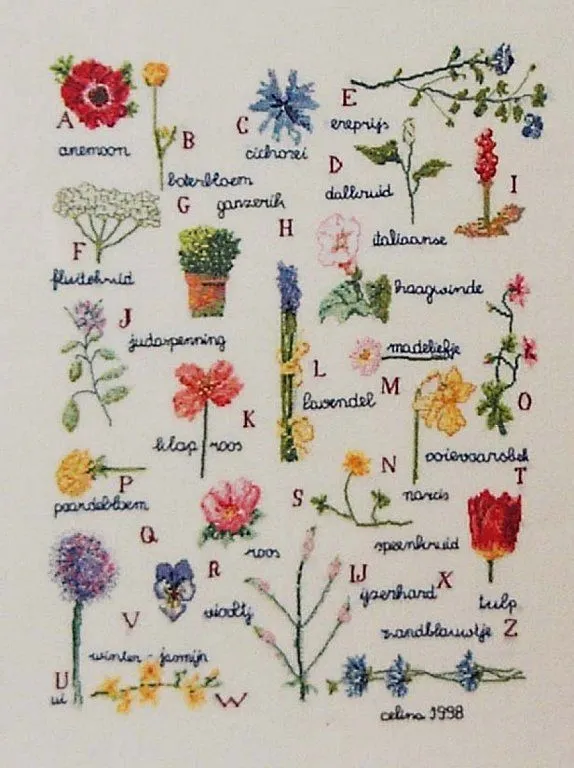 A
anemoon
B
boterbloem
C
cichorei
D
dalkruid
E
ereprijs
F
fluitekruid
G
ganzerik
H
haagwinde
I
italiaanse
J
judaspenning
K
klaproos
L
lavendel
M
madeliefje
N
narcis
O
ooievaarsbek
P
paardebloem
Q
R
roos
S
speenkruid
T
tulp
U
ui
V
viooltj
W
winter-jasmijn
X
IJ
ijzerhard
Z
zandblauwtje
celina 1998